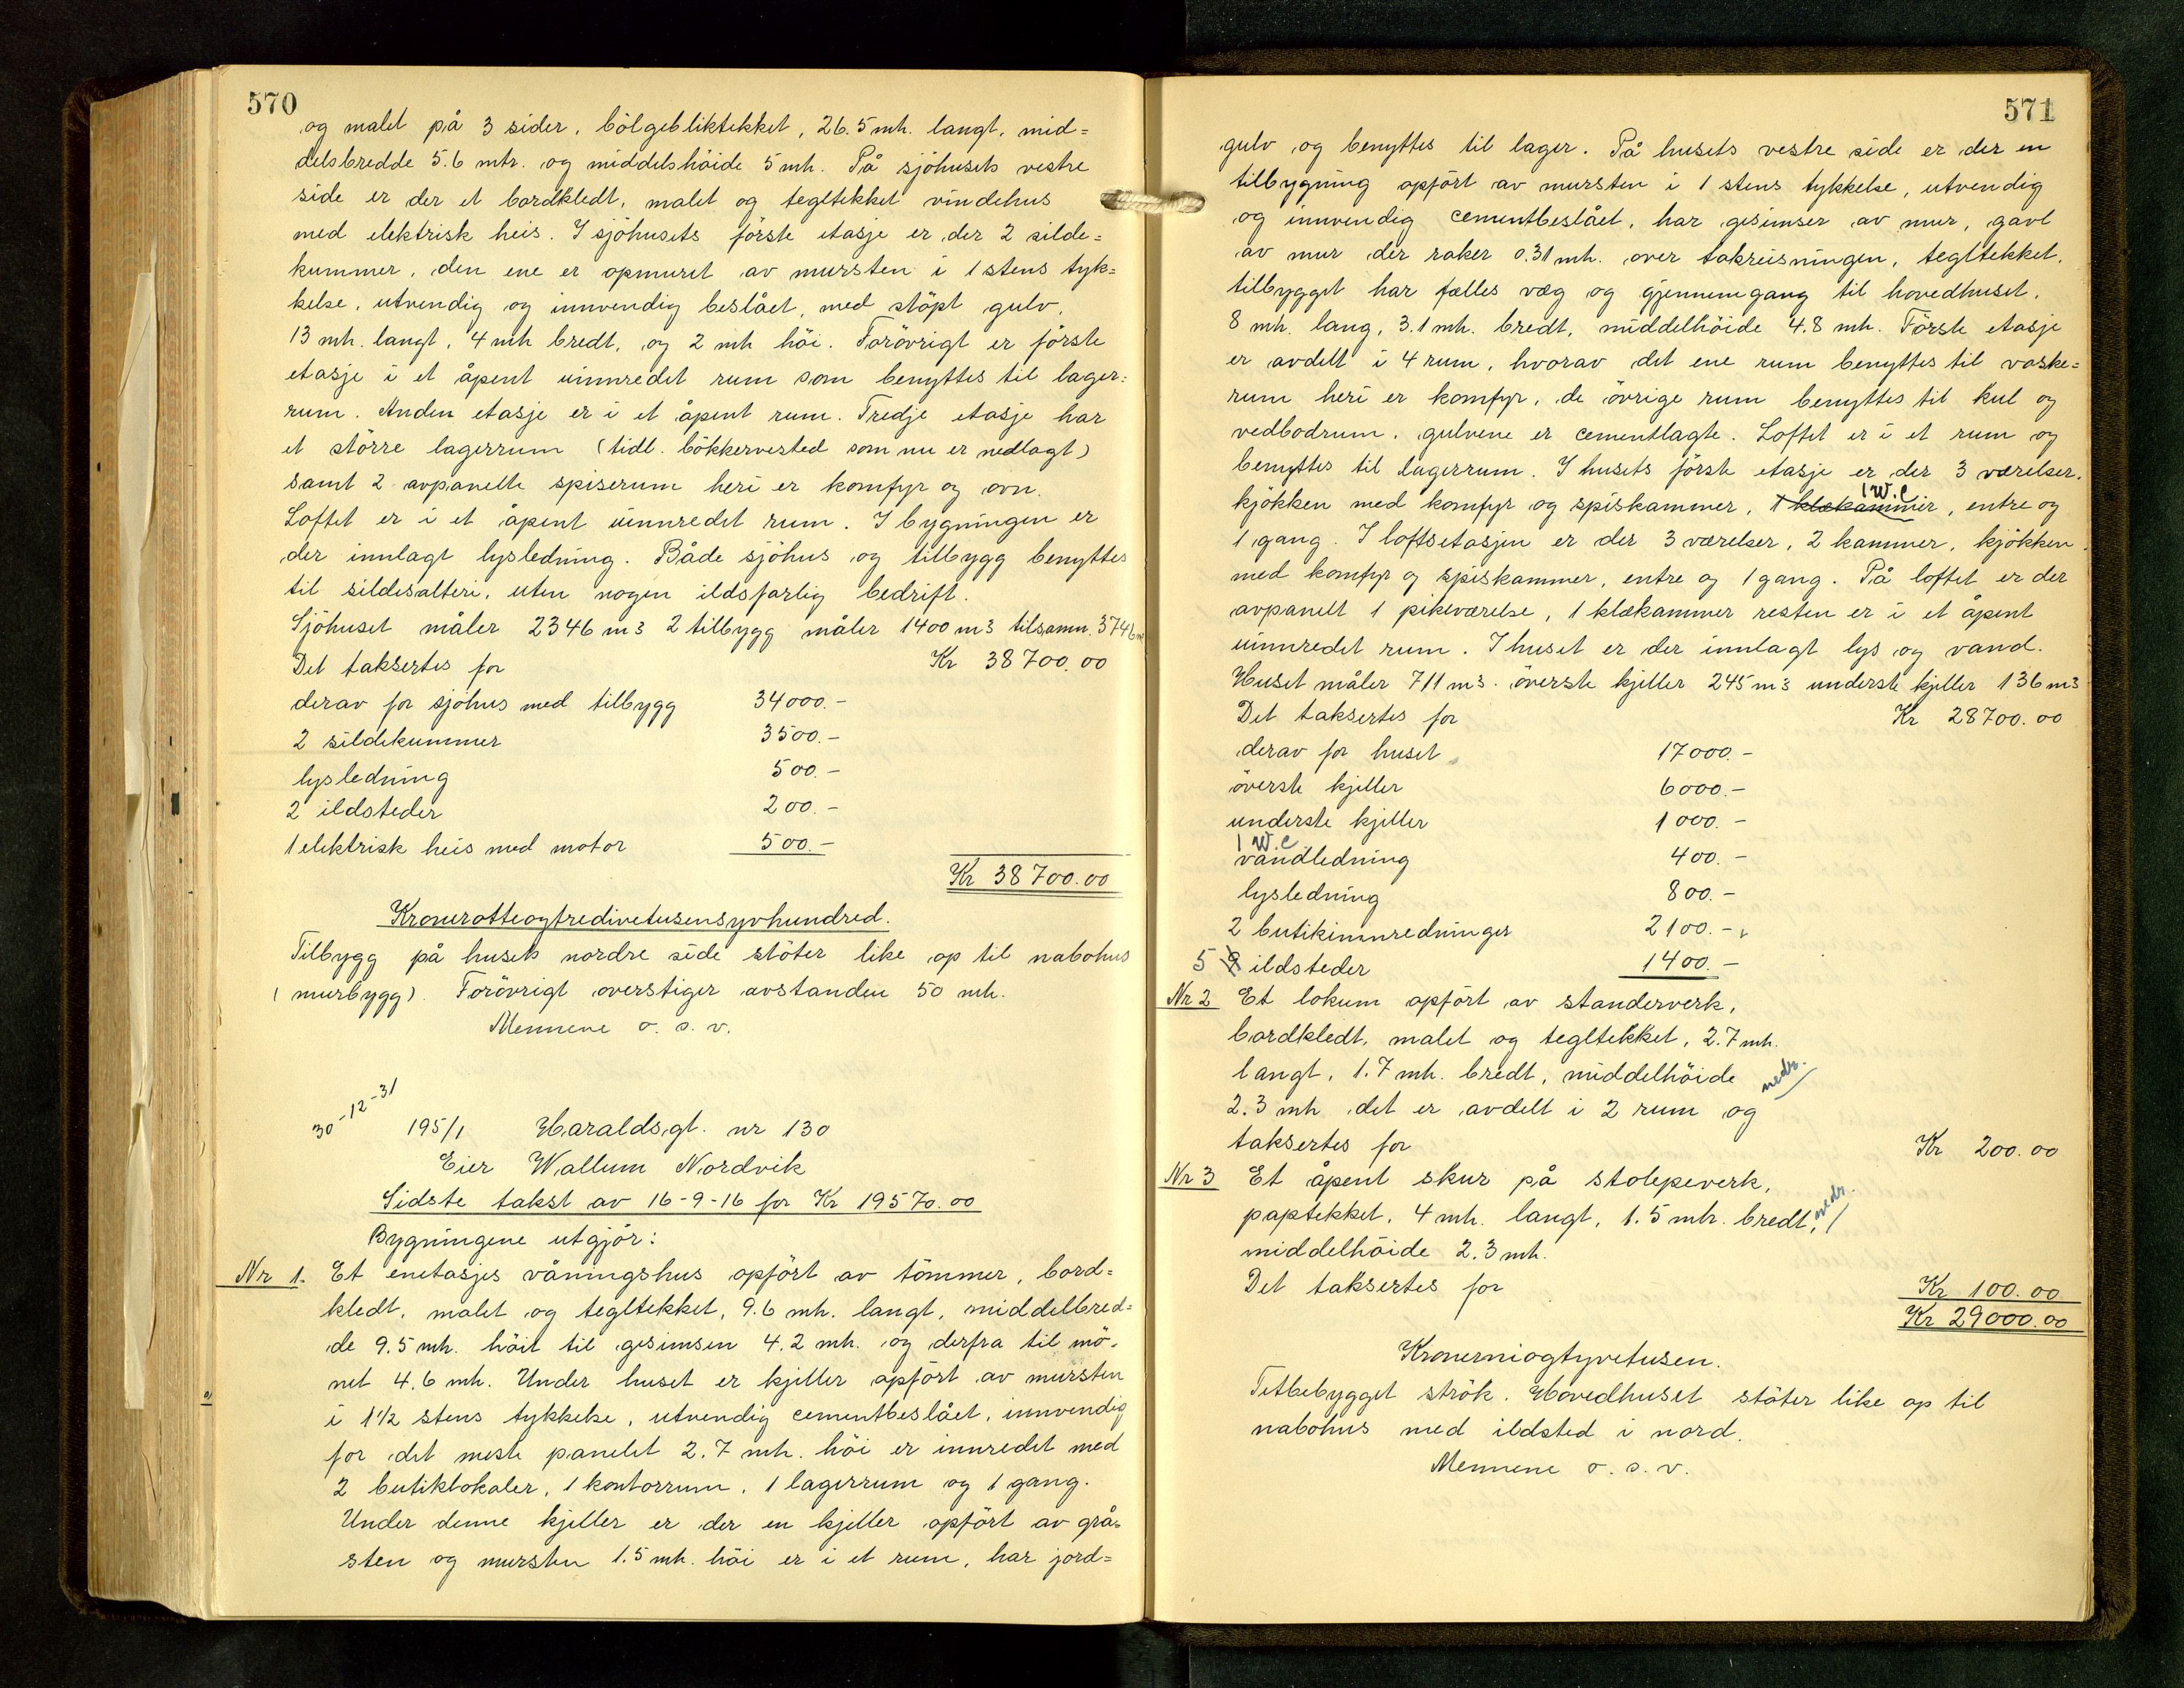 570
og malet på 3 sider, bölgebliktekket, 26.5 mtr. langt, mid=
delsbredde 5.6 mtr. og middelshöide 5 mtr. På sjöhusets vestre
side er der et bordkledt, malet og tegltekket vindehus
med elektrisk heis. I sjöhusets förste etasje er der 2 silde=
kummer, den ene er opmuret av mursten i 1 stens tyk=
kelse, utvendig og innvendig beslået, med stöpt gulv,
13 mtr. langt, 4 mtr bredt, og 2 mtr höi. Forövrigt er förste
etasje i et åpent uinnredet rum som benyttes til lager=
rum. Anden etasje er i et åpent rum. Tredje etasje har
et större lagerrum (tidl. bökkerverksted som nu er nedlagt)
samt 2 avpanelte spiserum heri er komfyr og ovn.
Loftet er i et åpent uinnredet rum. I bygningen er
der innlagt lysledning. Både sjöhus og tilbygg benyttes
til sildesalteri, uten nogen ildsfarlig bedrift.
Sjöhuset måler 2346 m3 2 tilbygg måler 1400 m3 tilsamn. 3746 m
Det taksertes for Kr 38700.00
derav for sjöhus med tilbygg 34000.-
2 sildekummer 3500.-
lysledning 500.-
2 ildsteder 200.-
1 elektrisk heis med motor 500.-
Kr 38700.00
Kronerotteogtredivetusensyvhundred.
Tilbygg på husets nordre side stöter like op til nabohus
(murbygg). Forövrigt overstiger avstanden 50 mtr.
Mennene o. s. v.
30-12-31
195/1 Haraldsgt. nr 130
Eier Wallum Nordvik
Sidste takst av 16-9-16 for Kr 19570.00
Bygningene utgjör:
Nr 1. Et enetasjes våningshus opfört av tömmer, bord=
kledt, malet og tegltekket, 9.6 mtr. langt, middelbred=
de 9.5 mtr. höit til gesimsen 4.2 mtr. og derfra til mö-
net 4.6 mtr. Under huset er kjeller opfört av mursten
i 1½ stens tykkelse, utvendig cementbeslået, innvendig
for det meste panelet 2.7 mtr. höi er innredet med
2 butiklokaler, 1 kontorrum, 1 lagerrum og 1 gang.
Under denne kjeller er der en kjeller opfört av grå-
sten og mursten 1.5 mtr. höi er i et rum, har jord=
571
gulv og benyttes til lager. På husets vestre side er der en
tilbygning opfört av mursten i 1 stens tykkelse, utvendig
og innvendig cementbeslået, har gesimser av mur, gavl
av mur der raker 0.31 mtr. over takreisningen, tegltekket,
tilbygget har fælles væg og gjennemgang til hovedhuset,
8 mtr. lang, 3.1 mtr. bredt, middelhöide 4.8 mtr. Förste etasje
er avdelt i 4 rum, hvorav det ene rum benyttes til vaske=
rum heri er komfyr, de övrige rum benyttes til kul og
vedbodrum, gulvene er cementlagte. Loftet er i et rum og
benyttes til lagerrum. I husets förste etasje er der 3 værelser,
1 W.C
kjökken med komfyr og spiskammer, 1 klækammer, entre og
1 gang. I loftsetasjen er der 3 værelser, 2 kammer, kjökken
med komfyr og spiskammer, entre og 1 gang. På loftet er der
avpanelt 1 pikeværelse, 1 klækammer resten er i et åpent
uinnredet rum. I huset er der innlagt lys og vand.
Huset måler 711 m3. överste kjeller 245 m3 underste kjeller 136 m3
Det taksertes for Kr 28700.00
derav for huset 17000.-
överste kjeller 6000.-
underste kjeller 1000.-
1 W.C
vandledning 400.-
lysledning 800.-
2 butikinnredninger 2100.-
5 9 ildsteder 1400.-
Nr 2 Et lokum opfört av standerverk,
bordkledt, malet og tegltekket, 2.7 mtr.
langt, 1.7 mtr. bredt, middelhöide nedr.
2.3 mtr det er avdelt i 2 rum og
taksertes for Kr 200.00
Nr 3 Et åpent skur på stolepeverk,
paptekket, 4 mtr. langt, 1.5 mtr. bredt, nedr.
middelhöide 2.3 mtr.
Det taksertes for Kr 100.00
Kr 29000.00
Kronerniogtyvetusen.
Tetbebygget strök. Hovedhuset stöter like op til
nabohus med ildsted i nord.
Mennene o. s. v.